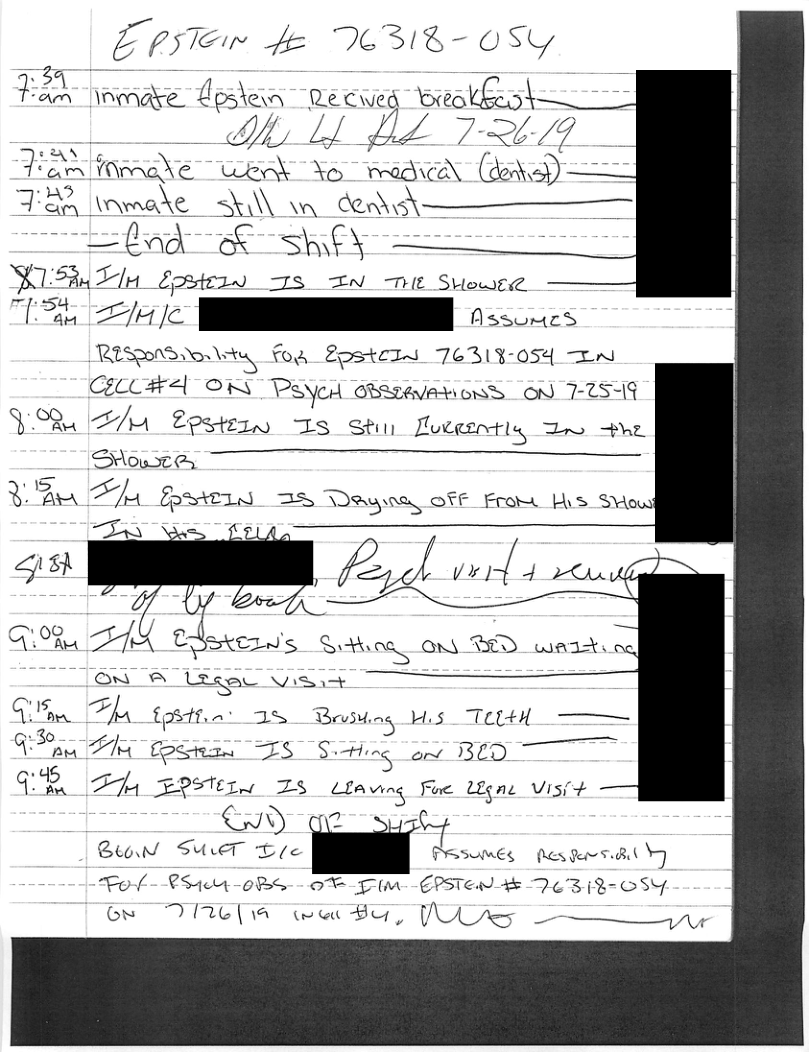 EPSTEIN # 76318-054
7:39 am inmate Epstein Recived breakfast
7-26-19
7:41 am inmate went to medical (dentist)
7:43 am inmate still in dentist
- End of shift
7:53 AM I/M EPSTEIN IS IN THE SHOWER
7:54 AM I/M/C ASSUMES
RESPONSIBILITY FOR EPSTEIN 76318-054 IN
CELL #4 ON PSYCH OBSERVATIONS ON 7-25-19
8:00 AM I/M EPSTEIN IS Still CURRENTLY IN the
SHOWER
8:15 AM I/M EPSTEIN IS Drying OFF FROM HIS SHOW
IN HIS
Psych visit +
of log book
9:00 AM I/M EPSTEIN'S Sitting ON BED WAITING
ON A LEGAL VISIT
9:15 AM I/M Epstein IS Brushing HIS TEETH
9:30 AM I/M EPSTEIN IS Sitting ON BED
9:45 AM I/M EPSTEIN IS LEAVING FOR LEGAL VISIT
END OF SHIFT
BEGIN SHIFT I/C ASSUMES RESPONSIBILITY
FOR PSYCH OBS OF I/M EPSTEIN # 76318-054
ON 7/26/19 IN Cell #4.